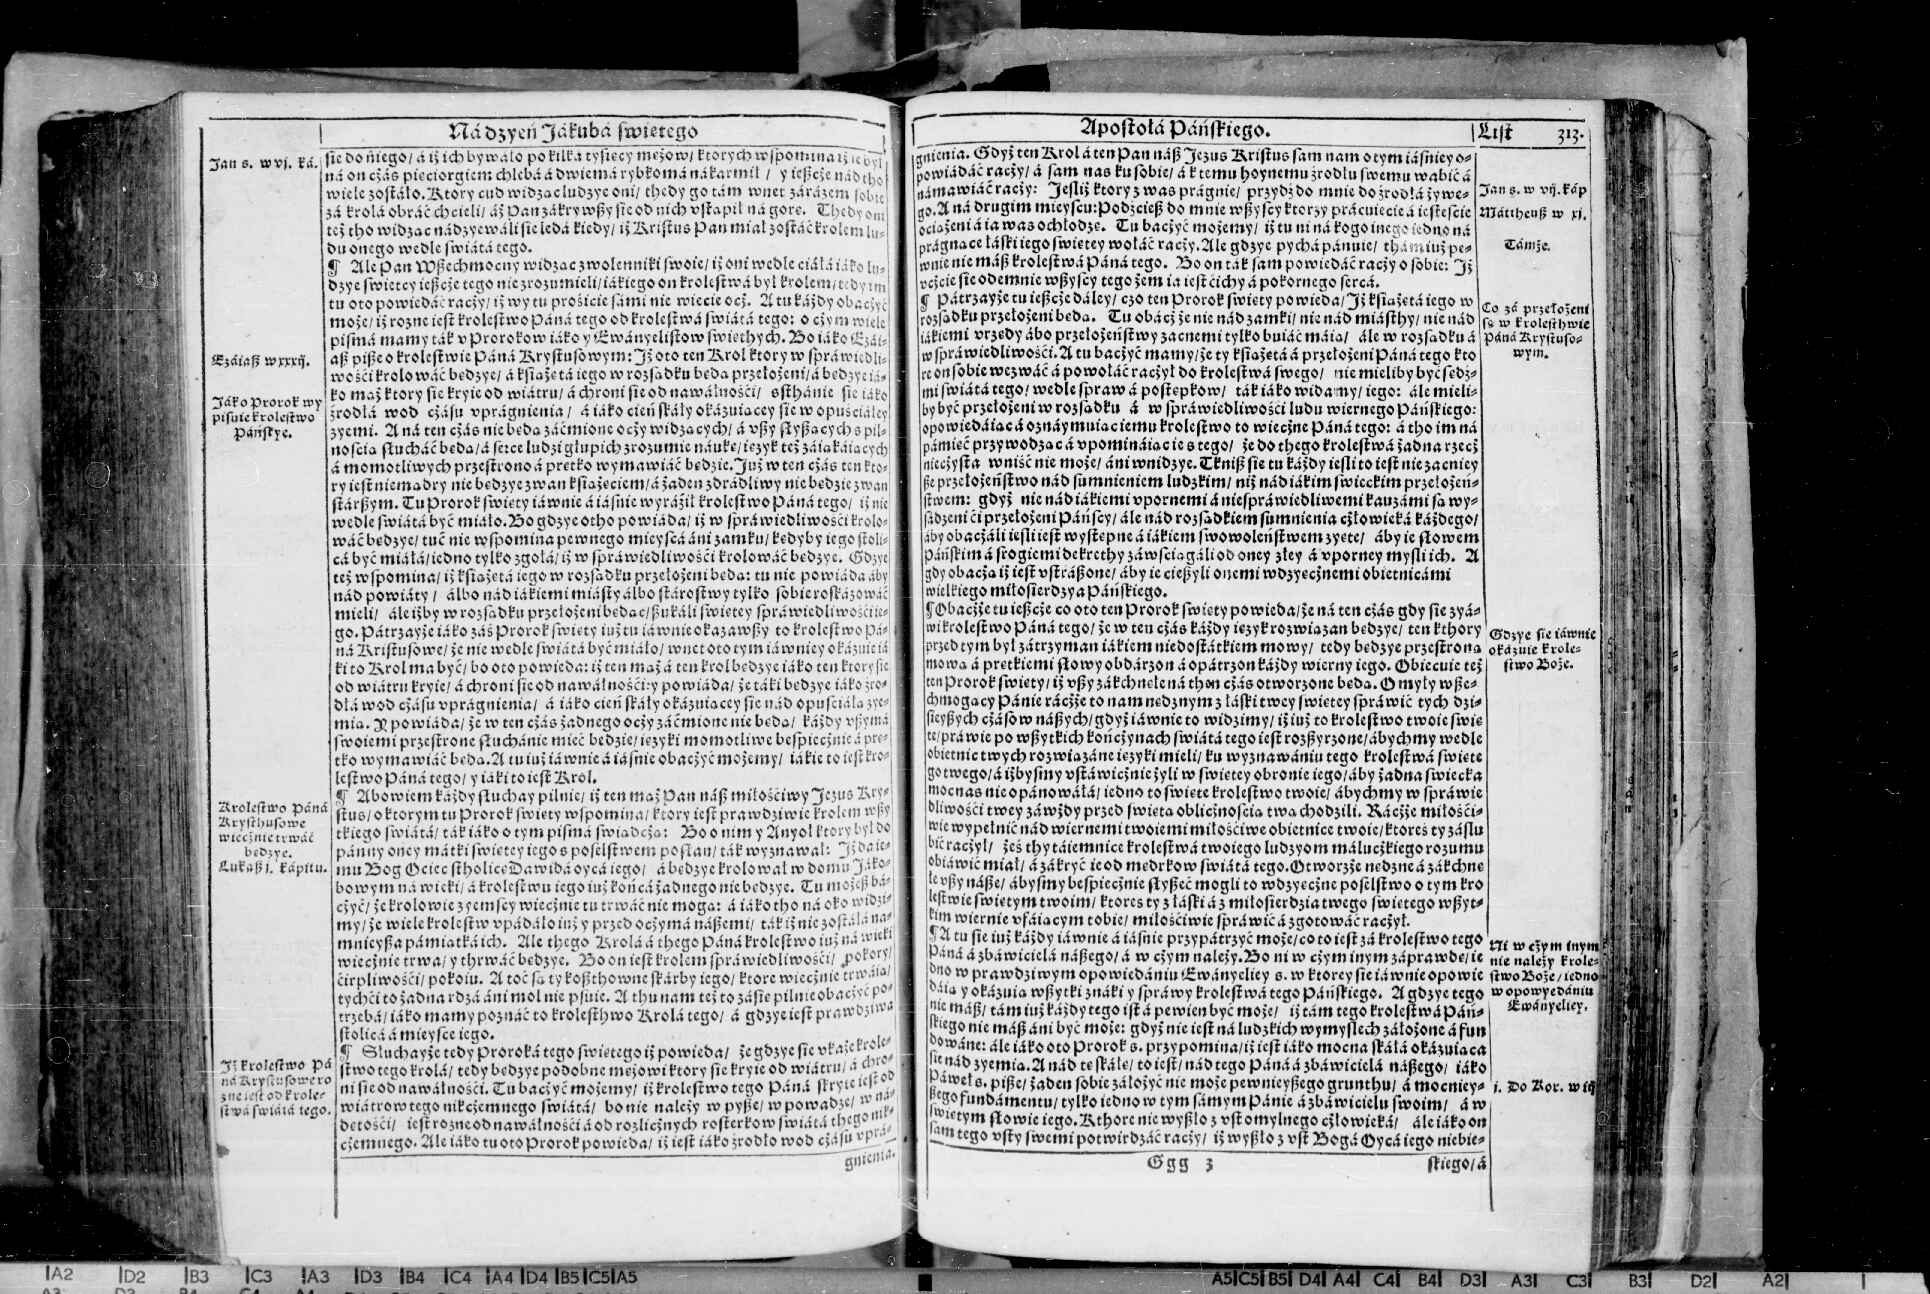 Ná dzyeń Jákubá swiętego
Jan s. w vj. ká.
sie do niego/ á iż ich bywáło po kilká tysięcy mężow/ ktorych wspomina iż ie był
ná on cżás pięciorgiem chlebá á dwiemá rybkomá nákarmił / y ieszcże nád tho
wiele zostáło. Ktory cud widząc ludzye oni/ thedy go tám wnet zárázem sobie
zá krolá obráć chcieli/ áż Pan zákrywszy sie od nich vstąpił ná gorę. Thedy oni
też tho widząc nádzyewáli sie ledá kiedy/ iż Kristus Pan miał zostáć krolem lu-
du onego wedle swiátá tego.
¶ Ale Pan Wszechmocny widząc zwolenniki swoie/ iż oni wedle ciáłá iáko lu-
dzye swieccy ieszcże tego nie zrozumieli/ iákiego on krolestwá był krolem/ tedy im
tu oto powiedáć racży/ iż wy tu prosicie sámi nie wiecie ocż. A tu káżdy obacżyć
może/ iż rozne iest krolestwo Páná tego od krolestwá swiátá tego: o cżym wiele
pismá mamy ták v Prorokow iáko y Ewányelistow swiethych. Bo iáko Ezái-
Ezáiasz w xxxij.
asz pisze o krolestwie Páná Krystusowym: Iż oto ten Krol ktory w spráwiedli-
wości krolowáć będzye/ á książętá iego w rozsądku będą przełożeni/ á będzye iá-
ko mąż ktory sie kryie od wiátru/ á chroni sie od nawáłności/ ststhánie sie iáko
Jáko Prorok wy
pisuie krolestwo
Páńskye.
źrodłá wod cżásu vprágnienia/ á iáko cień skáły okázuiącey sie w opusciáłey
zyemi. A ná ten cżás nie będą záćmione ocży widzących/ á vszy słyszących s pil-
nością słucháć będą/ á serce ludzi głupich zrozumie náukę/ ięzyk też záiąkáiących
á momotliwych przestrono á prętko wymawiáć będzie. Już w ten cżás ten kto-
ry iest niemądry nie będzye zwan książęciem/ á żaden zdrádliwy nie będzie zwan
stárszym. Tu Prorok swięty iáwnie á iásnie wyráził krolestwo Páná tego/ iż nie
wedle swiátá być miáło. Bo gdzye otho powiáda/ iż w spráwiedliwości krolo-
wáć będzye/ tuć nie wspomina pewnego mieyscá áni zamku/ kedyby iego stoli-
cá być miáłá/ iedno tylko zgołá/ iż w spráwiedliwości krolowáć będzye. Gdzye
też wspomina/ iż książętá iego w rozsądku przełożeni będą: tu nie powiáda áby
nád powiáty/ álbo nád iákiemi miásty álbo stárostwy tylko sobie roskázowáć
mieli/ ále iżby w rozsądku przełożeni będąc/ szukáli swiętey spráwiedliwości ie-
go. Pátrzayże iáko záś Prorok swięty iuż tu iáwnie okazawszy to krolestwo Pá-
ná Kristusowe/ że nie wedle swiátá być miáło/ wnet oto tym iáwniey okázuie iá
ki to Krol ma być/ bo oto powieda: iż ten mąż á ten krol będzye iáko ten ktory sie
od wiátru kryie/ á chroni sie od nawáłności: y powiáda/ że táki będzye iáko źro-
dłá wod cżásu vprágnienia/ á iáko cień skáły okázuiącey sie nád opusciáłą zye-
mią. Y powiáda/ że w ten cżás żadnego ocży záćmione nie będą/ káżdy vszymá
swoiemi przestrone słuchánie mieć będzie/ ięzyki momotliwe bespiecżnie á prę-
tko wymawiáć będą. A tu iuż iáwnie á iásnie obacżyć możemy/ iákie to iest kro-
lestwo Páná tego/ y iáki to iest Krol.
¶ Abowiem káżdy słuchay pilnie/ iż ten mąż Pan nász miłościwy Jezus Kry-
Krolestwo Páná
Krysthusowe
wiecżnie trwáć
będzye.
stus/ o ktorym tu Prorok swięty wspomina/ ktory iest prawdziwie krolem wszy
tkiego swiátá/ ták iáko o tym pismá swiádcżą: Bo o nim y Anyoł ktory był do
pánny oney mátki swiętey iego s poselstwem posłan/ ták wyznawał: Iż da ie-
Lukasz j. kápitu.
mu Bog Ociec stholicę Dawidá oycá iego/ á będzye krolował w domu Jáko-
bowym ná wieki/ á krolestwu iego iuż końcá żadnego nie będzye. Tu możesz bá-
cżyć/ że krolowie zyemscy wiecżnie tu trwáć nie mogą: á iáko tho ná oko widzi-
my/ że wiele krolestw vpádáło iuż y przed ocżymá nászemi/ ták iż nie zostáłá na-
mnieysza pamiątká ich. Ale thego Krolá á thego Páná krolestwo iuż ná wieki
wiecżnie trwa/ y thrwáć będzye. Bo on iest krolem spráwiedliwości/ pokory/
ćirpliwości/ pokoiu. A toć są ty kosztowne skárby iego/ ktore wiecżnie trwáią/
tychći to żadna rdzá áni mol nie psuie. A thu nam też to zásię pilnie obacżyć po-
trzebá/ iáko mamy poznáć to krolesthwo Krolá tego/ á gdzye iest prawdziwa
stolicá á mieysce iego.
¶ Słuchayże tedy Proroká tego swiętego iż powieda/ że gdzye sie vkaże krole-
Iż krolestwo Pá
ná Krystusowe ro
zne iest od krole-
stwá swiátá tego.
stwo tego krolá/ tedy będzye podobne mężowi ktory sie kryie od wiátru/ á chro-
ni sie od nawáłności. Tu bacżyć możemy/ iż krolestwo tego Páná skryte iest od
wiátrow tego nikcżemnego swiátá/ bo nie należy w pysze/ w powadze/ w ná-
dętości/ iest rozne od nawáłności á od rozlicżnych rosterkow swiátá thego nik-
cżemnego. Ale iáko tu oto Prorok powieda/ iż iest iáko źrodło wod cżásu vprá-
gnienia.
Apostołá Páńskiego.
List 313.
gnienia. Gdyż ten Krol á ten Pan nász Jezus Kristus sam nam o tym iásniey o-
powiádáć racży/ á sam nas ku sobie/ á k temu hoynemu źrodłu swemu wabić á
námawiáć racży: Jesliż ktory z was prágnie/ przydź do mnie do źrodłá żywe-
Jan s. w vij. káp
go. A ná drugim mieyscu: Podźcież do mnie wszyscy ktorzy prácuiecie á iestescie
Máttheusz w xj.
ociążeni á ia was ochłodzę. Tu bacżyć możemy/ iż tu ni ná kogo inego iedno ná
prágnące łáski iego swiętey wołáć racży. Ale gdzye pychá pánuie/ thám iuż pe-
Támże.
wnie nie mász krolestwá Páná tego. Bo on ták sam powiedáć racży o sobie: Iż
vcżcie sie odemnie wszyscy tego żem ia iest cichy á pokornego sercá.
¶ Pátrzayże tu ieszcże dáley/ czo ten Prorok swięty powieda/ Iż książętá iego w
Co zá przełożeni
są w krolesthwie
Páná Krystuso-
wym.
rozsądku przełożeni będą. Tu obácż że nie nád zamki/ nie nád miásthy/ nie nád
iákiemi vrzędy ábo przełożeństwy zacnemi tylko buiáć máią/ ále w rozsądku á
w spráwiedliwości. A tu bacżyć mamy/ że ty książętá á przełożeni Páná tego kto
re on sobie wezwáć á powołáć racżył do krolestwá swego/ nie mieliby być sędź-
mi swiátá tego/ wedle spraw á postępkow/ ták iáko widamy/ iego: ále mieli-
by być przełożeni w rozsądku á w spráwiedliwości ludu wiernego Páńskiego:
opowiedáiąc á oznaymuiąc iemu krolestwo to wiecżne Páná tego: á tho im ná
pámięć przywodząc á vpomináiąc ie s tego/ że do thego krolestwá żadna rzecż
niecżysta wniść nie może/ áni wnidzye. Tkniż sie tu káżdy iesli to iest nie zacniey
sze przełożeństwo nád sumnieniem ludzkim/ niż nád iákim swieckim przełożeń-
stwem: gdyż nie nád iákiemi vpornemi á niespráwiedliwemi kauzámi są wy-
sádzeni ći przełożeni Páńscy/ ále nád rozsądkiem sumnienia cżłowieká káżdego/
áby obacżáli iesli iest występne á iákiem swowoleństwem zyęte/ áby ie słowem
Páńskim á srogiemi dekrethy záwsciągáli od oney złey á vporney mysli ich. A
gdy obacżą iż iest vstrászone/ áby ie cieszyli onemi wdzyęcżnemi obietnicámi
wielkiego miłosierdzya Páńskiego.
¶ Obacżże tu ieszcże co oto ten Prorok swięty powieda/ że ná ten cżás gdy sie zyá-
wi krolestwo Páná tego/ że w ten cżás káżdy ięzyk rozwiązan będzye/ ten kthory
Gdzye sie iáwnie
okázuie krole-
stwo Boże.
przed tym był zátrzyman iákiem niedostátkiem mowy/ tedy będzye przestroną
mową á prętkiemi słowy obdárzon á opátrzon káżdy wierny iego. Obiecuie też
ten Prorok swięty/ iż vszy zákchnełe ná then cżás otworzone będą. O myły wsze-
chmogący Pánie racżże to nam nędznym z łáski twey swiętey spráwić tych dzi-
sieyszych cżásow nászych/ gdyż iáwnie to widzimy/ iż iuż to krolestwo twoie swię
te/ práwie po wszytkich końcżynach swiátá tego iest rozszyrzone/ ábychmy wedle
obietnic twych rozwiązáne ięzyki mieli/ ku wyznawániu tego krolestwá swięte
go twego/ á iżbysmy vstáwicżnie żyli w swiętey obronie iego/ áby żadna swiecka
moc nas nie opánowáłá/ iedno to swięte krolestwo twoie/ ábychmy w spráwie
dliwości twey záwżdy przed swiętą oblicżnością twą chodzili. Racżże miłości-
wie wypełnić nád wiernemi twoiemi miłościwe obietnice twoie/ ktoreś ty záslu
bić racżył/ żeś thy táiemnice krolestwá twoiego ludzyom málucżkiego rozumu
obiáwić miał/ á zákryć ie od mędrkow swiátá tego. Otworzże nędzne á zákchne
łe vszy násze/ ábysmy bespiecżnie słyszeć mogli to wdzyęcżne poselstwo o tym kro
lestwie swiętym twoim/ ktoreś ty z łáski á z miłosierdzia twego swiętego wszyt-
kim wiernie vfáiącym tobie/ miłościwie spráwić á zgotowáć racżył.
¶ A tu sie iuż káżdy iáwnie á iásnie przypátrzyć może/ co to iest zá krolestwo tego
Ni w cżym inym
nie należy krole-
stwo Boże/ iedno
w opowyedániu
Ewányeliey.
Páná á zbáwicielá nászego/ á w cżym należy. Bo ni w cżym inym zápráwdę/ ie
dno w prawdziwym opowiedániu Ewányeliey s. w ktorey sie iáwnie opowie
dáią y okázuią wszytki znáki y spráwy krolestwá tego Páńskiego. A gdzye tego
nie mász/ tám iuż káżdy tego ist á pewien być może/ iż tám tego krolestwá Páń-
skiego nie mász áni być może: gdyż nie iest ná ludzkich wymysłech záłożone á fun
dowáne: ále iáko oto Prorok s. przypomina/ iż iest iáko mocna skáłá okázuiąca
sie nád zyemią. A nád tę skáłę/ to iest/ nád tego Páná á zbáwicielá nászego/ iáko
Páweł s. pisze/ żaden sobie záłożyć nie może pewnieyszego grunthu/ á mocniey-
j. Do Kor. w iij
szego fundámentu/ tylko iedno w tym sámym Pánie á zbáwicielu swoim/ á w
swiętym słowie iego. Kthore nie wyszło z vst omylnego cżłowieká/ ále iáko on
sam tego vsty swemi potwirdzáć racży/ iż wyszło z vst Bogá Oycá iego niebie-
Ggg 3
skiego/ á